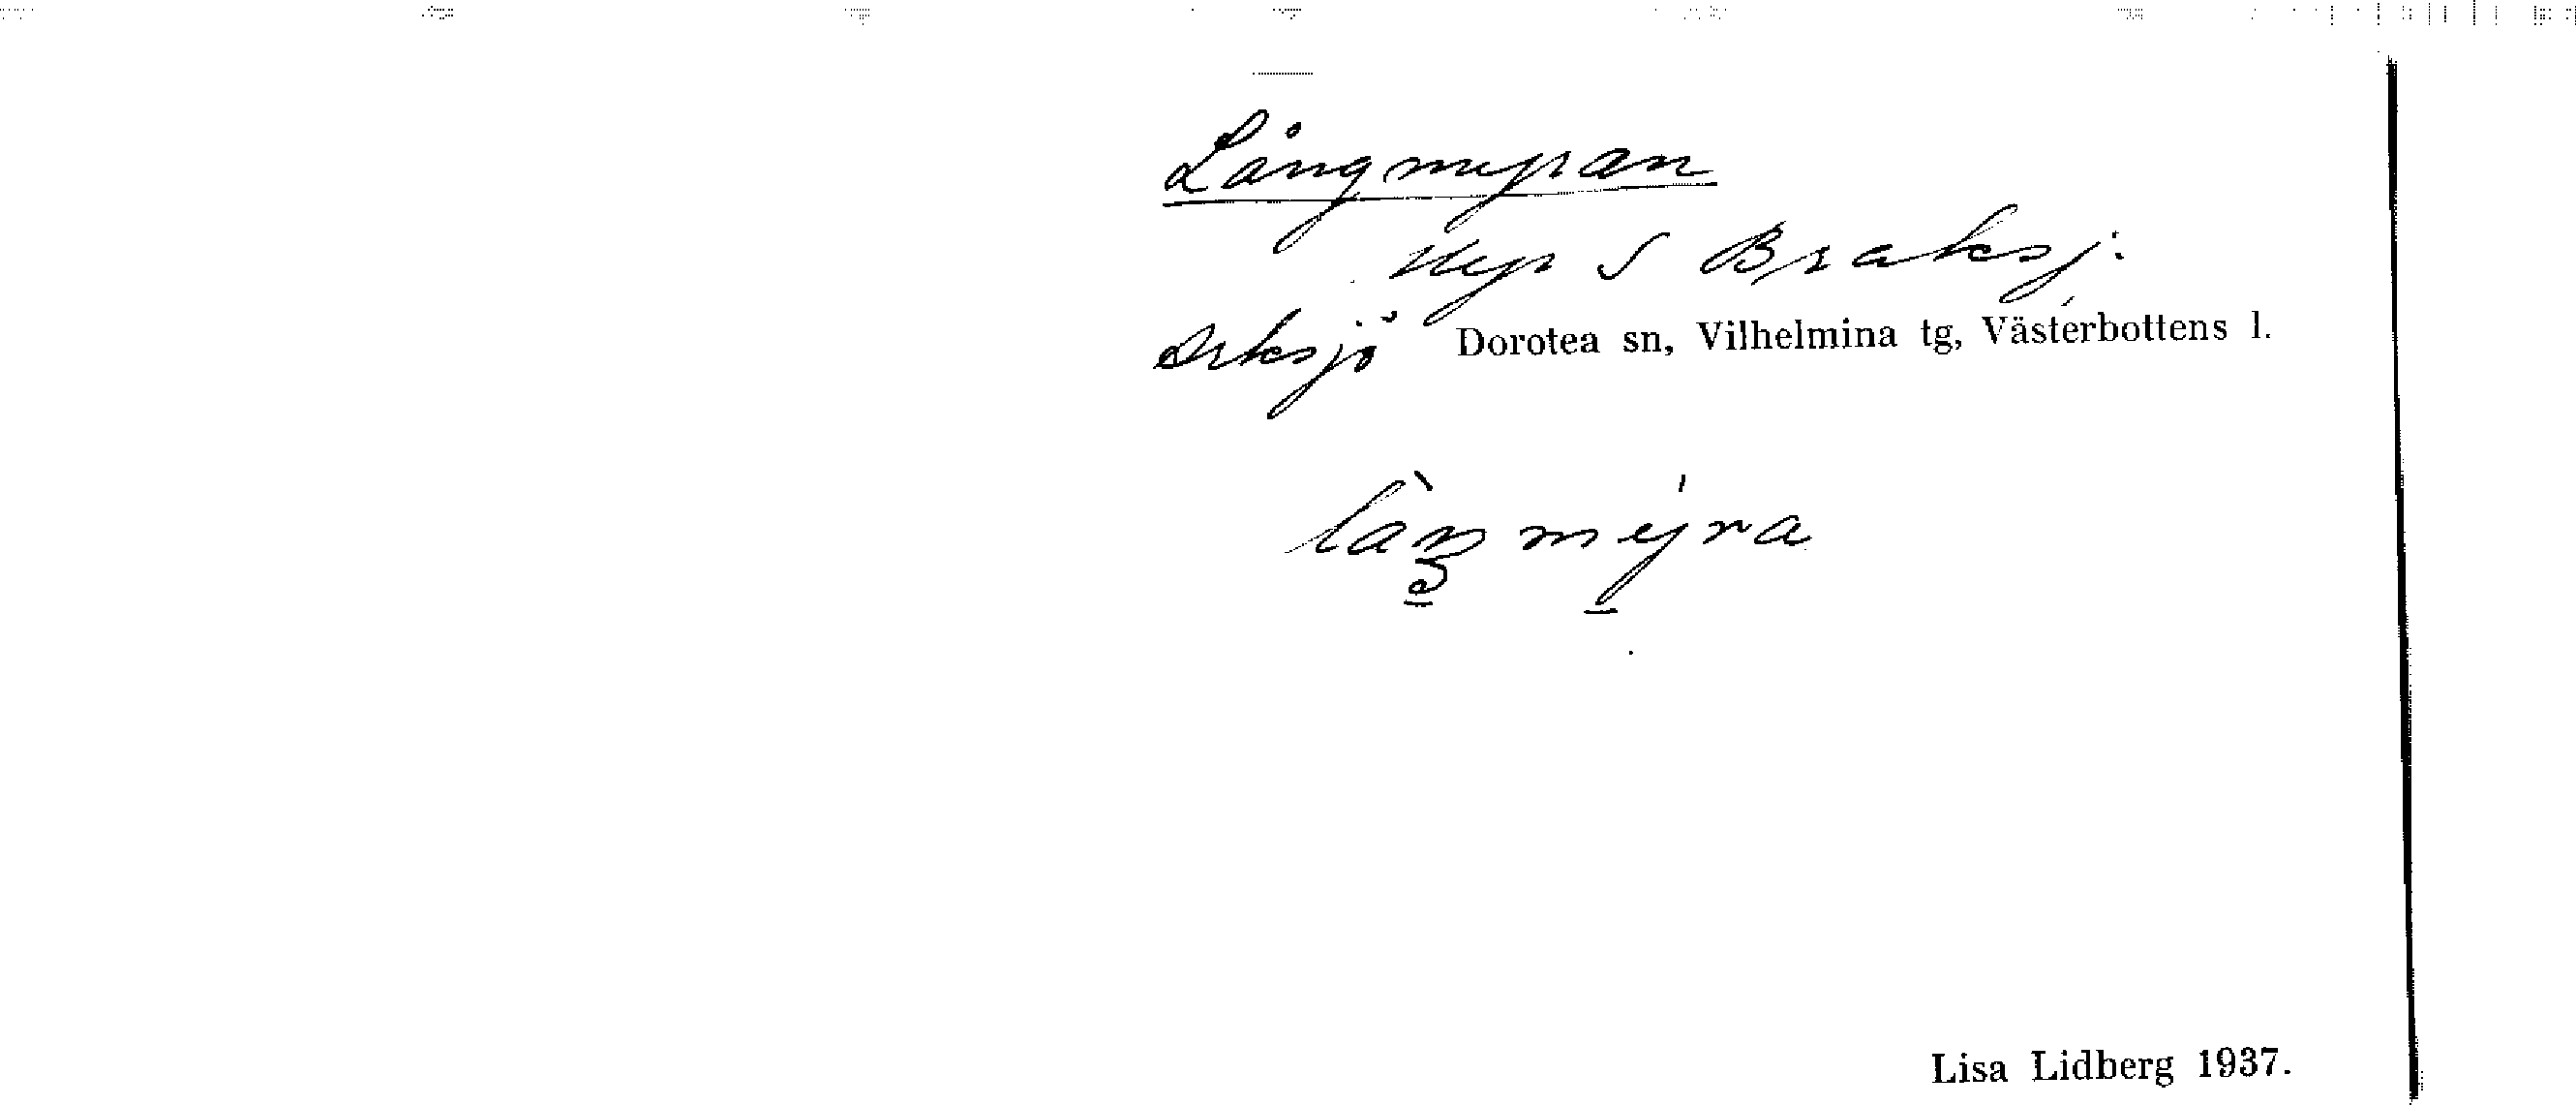 Långmyran
Myr S Braksj.
Arksjö Dorotea sn, Vilhelmina tg, Västerbottens l.
Lisa Lidberg 1937.